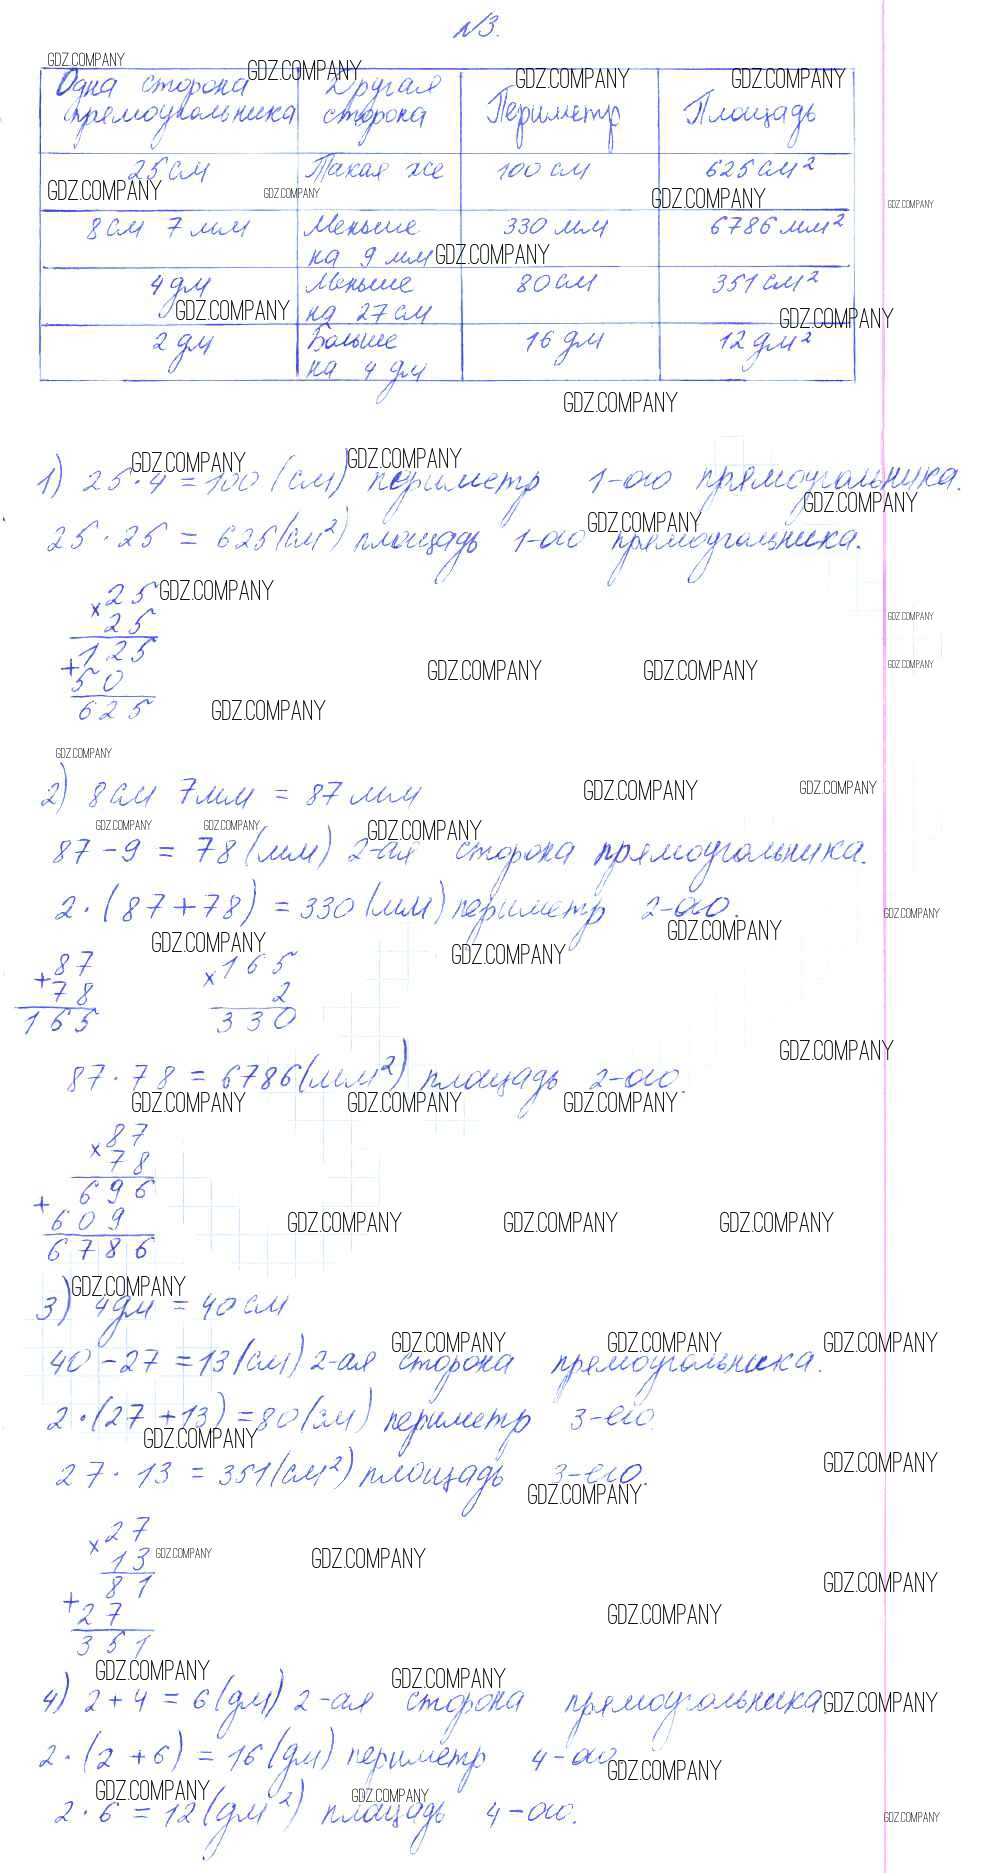 №3.
Одна сторона прямоугольника | Другая сторона | Периметр | Площадь
25 см | Такая же | 100 см | 625 см²
8 см 7 мм | Меньше на 9 мм | 330 мм | 6786 мм²
4 дм | Меньше на 27 см | 80 см | 351 см²
2 дм | Больше на 4 дм | 16 дм | 12 дм²
1) 25 · 4 = 100 (см) периметр 1-ого прямоугольника.
25 · 25 = 625 (см²) площадь 1-ого прямоугольника.
× 25
25
125
+ 50
625
2) 8 см 7 мм = 87 мм
87 - 9 = 78 (мм) 2-ая сторона прямоугольника.
2 · (87 + 78) = 330 (мм) периметр 2-ого.
+ 87
78
165
× 165
2
330
87 · 78 = 6786 (мм²) площадь 2-ого.
× 87
78
696
+ 609
6786
3) 4 дм = 40 см
40 - 27 = 13 (см) 2-ая сторона прямоугольника.
2 · (27 + 13) = 80 (см) периметр 3-его.
27 · 13 = 351 (см²) площадь 3-его.
× 27
13
81
+ 27
351
4) 2 + 4 = 6 (дм) 2-ая сторона прямоугольника
2 · (2 + 6) = 16 (дм) периметр 4-ого
2 · 6 = 12 (дм²) площадь 4-ого.
GDZ.COMPANY